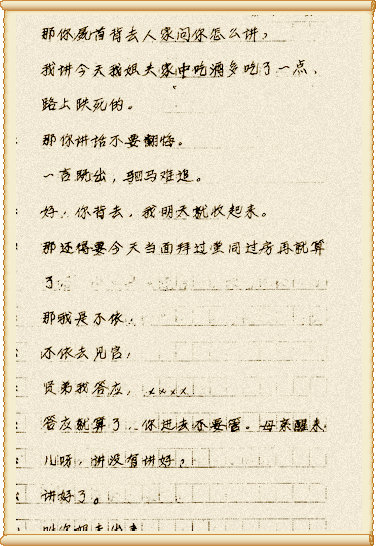 那你尸首背去人家问你怎么讲，
我讲今天我姐夫家中吃酒多吃了一点、
路上跌死的。
那你讲话不要翻悔。
一言既出，驷马难追。
好，你背去，我明天就收起来。
那还得要今天当面拜过堂同过房再就算
了。
那我是不依，
不依去见官，
贤弟我答应，xxxx
答应就算了，你进去不要害。母亲醒来
儿呀，讲没有讲好，
讲好了。
叫你姐夫出来